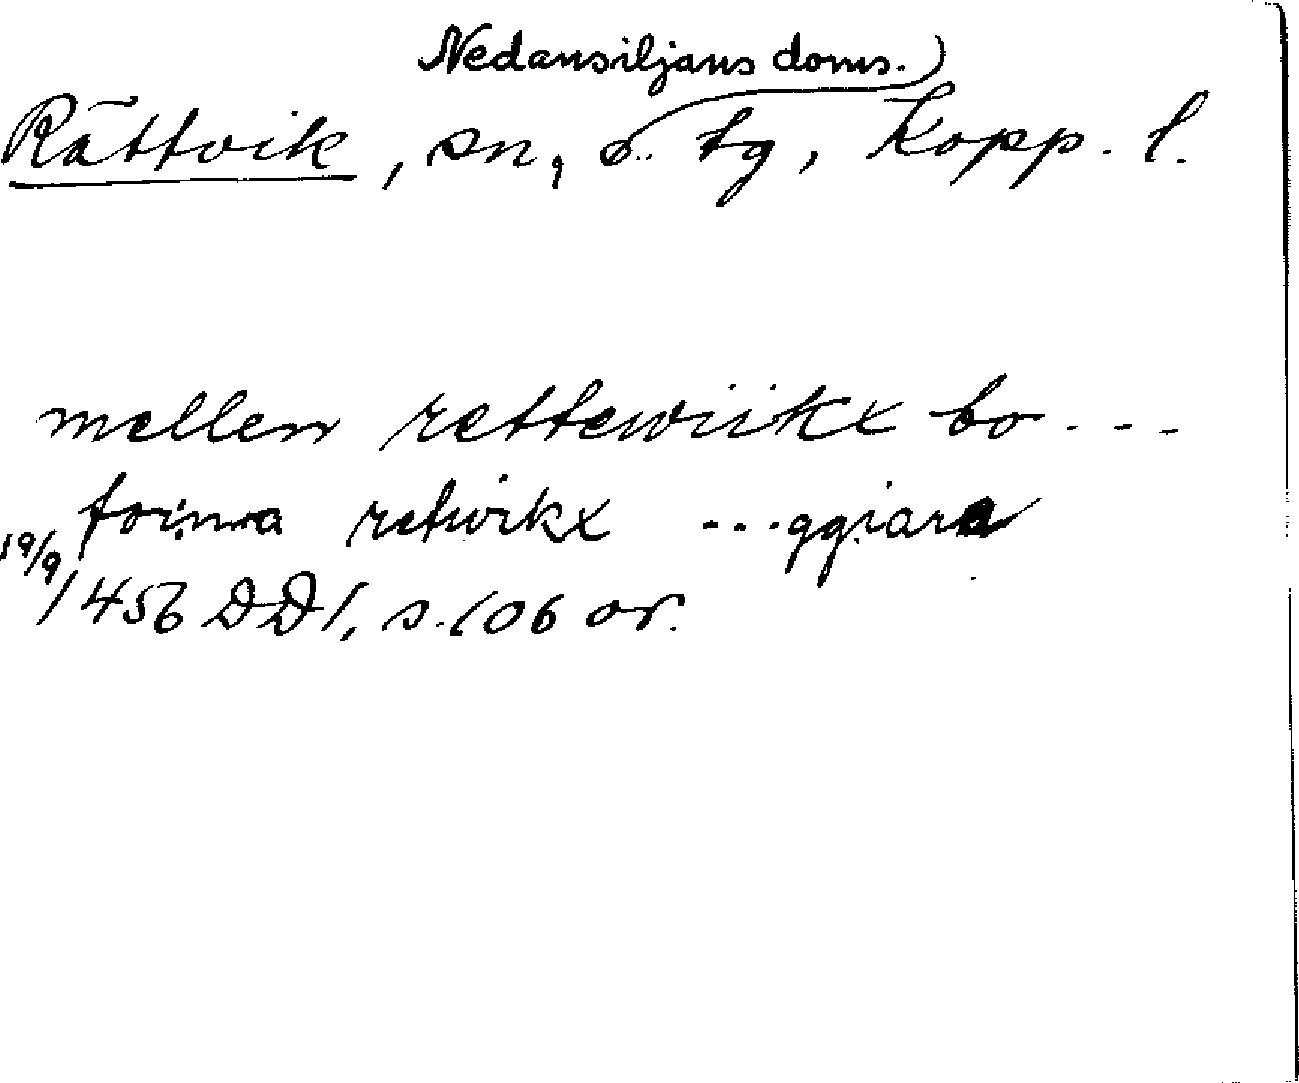 Nedansiljans doms.)
Rättvik, sn, o. tg, Kopp. l.
mellen rettewiikx bo ---
forinna retwikx ...ggiara
19/9/1456 DD1, s. 106 or.